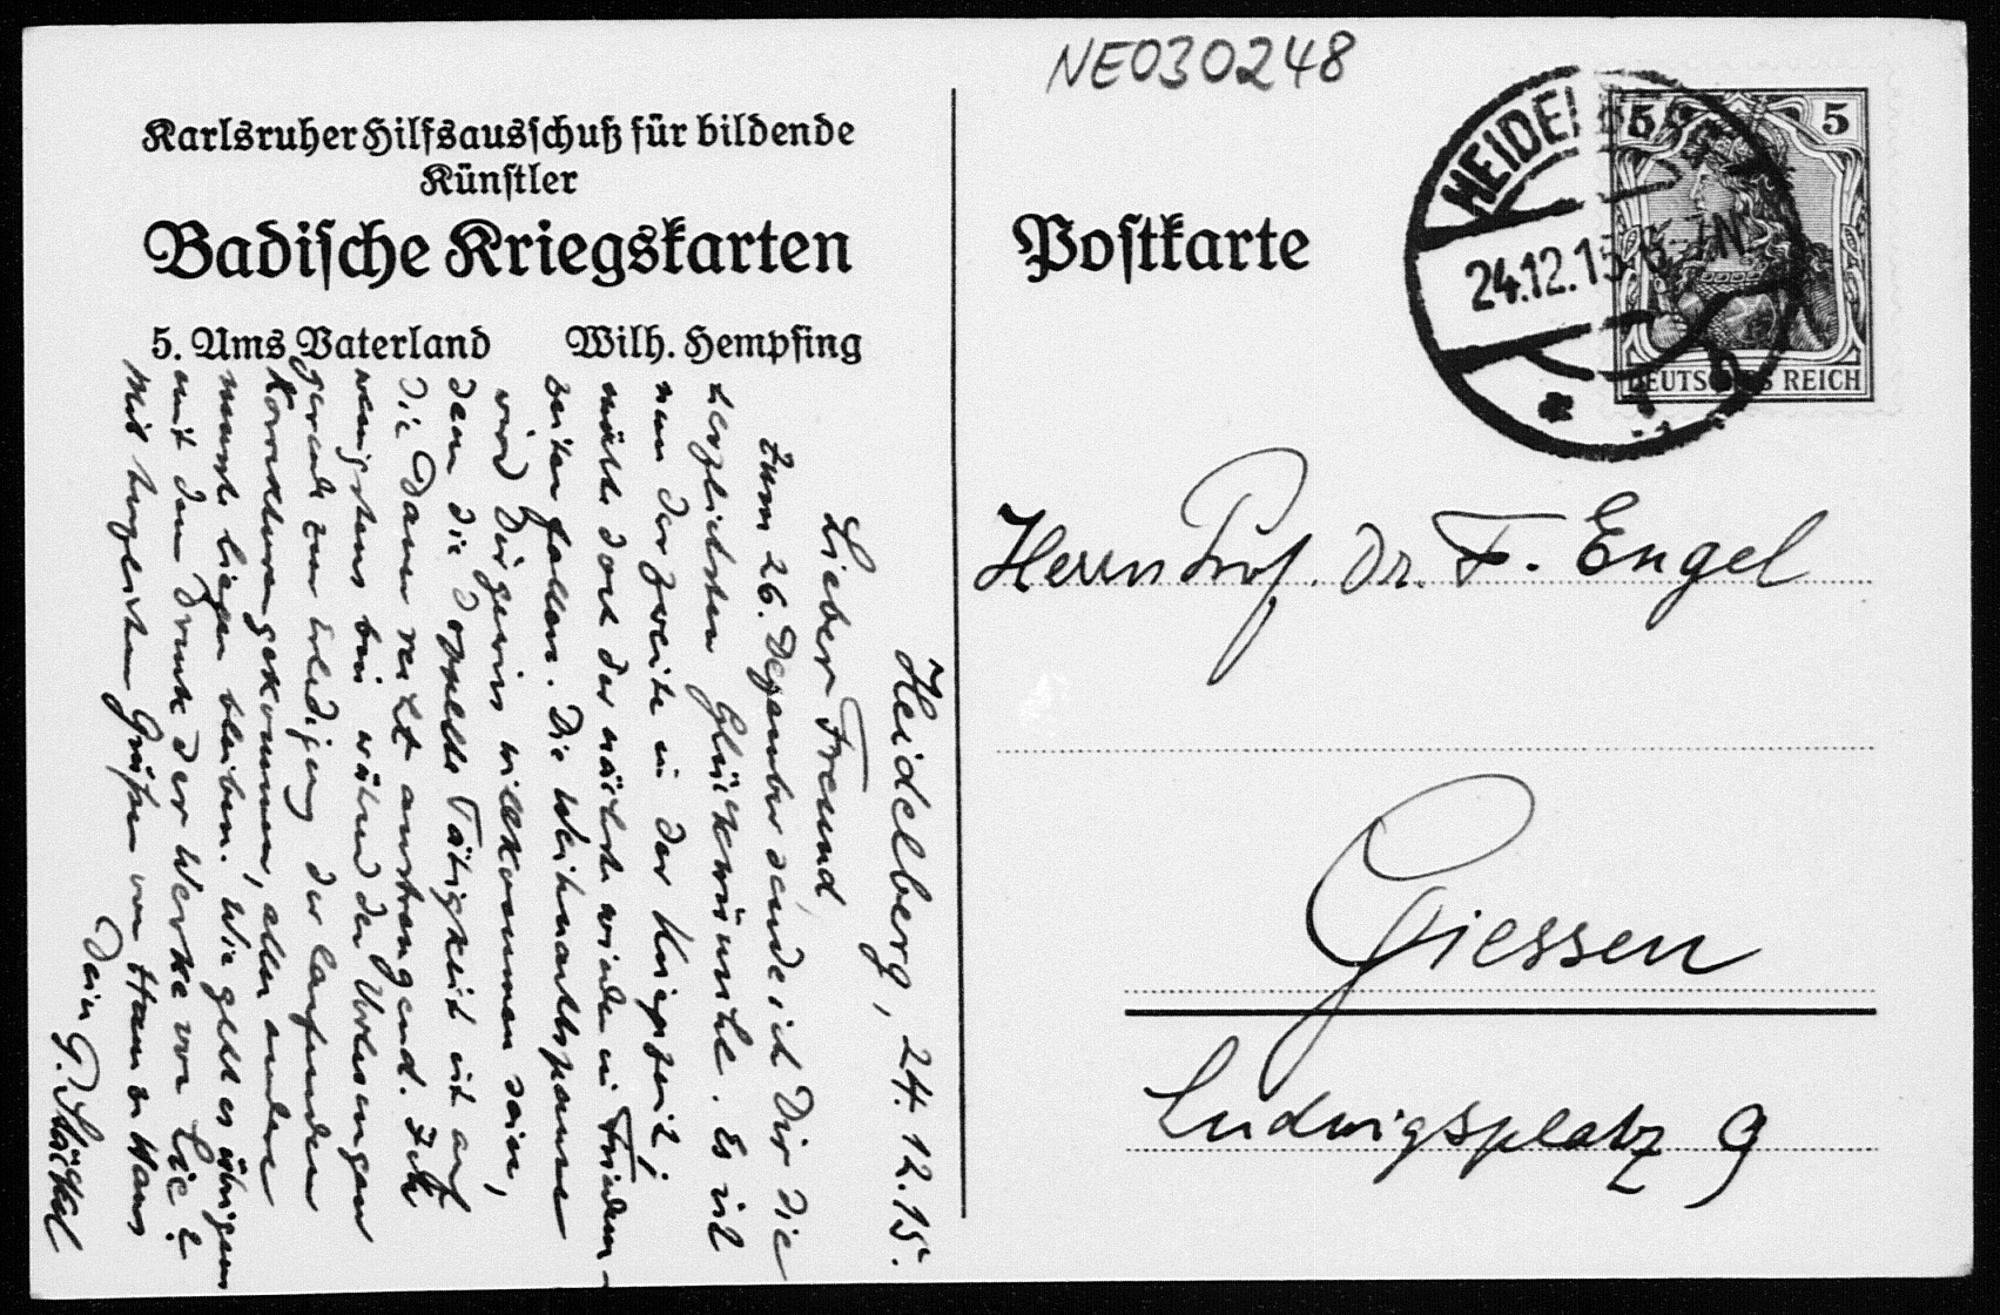 NE030248
Karlsruher Hilfsausschuß für bildende
Künstler
Badische Kriegskarten
5. Ums Vaterland Wilh. Hempfing
Postkarte
HEIDELBERG
24.12.15
5 5
DEUTSCHES REICH
Herrn Prof. Dr. F. Engel
Giessen
Ludwigsplatz 9
Heidelberg, 24. 12. 15.
Lieber Freund,
Zum 26. Dezember sende ich Dir die
herzlichsten Glückwünsche. Es ist
nun der zweite in der Kriegszeit;
möchte doch der nächste wieder in Friedens-
zeiten fallen. Die Weihnachtspause
wird Dir gewiss willkommen sein,
denn die doppelte Tätigkeit ist auf
die Dauer recht anstrengend. Ich
wenigstens bin während der Vorlesungen
gerade zur Erledigung der laufenden
Korrekturen gekommen, alles andere
musste liegen bleiben. Wie geht es übrigens
mit dem Druck der Werke von Lie?
Mit herzlichen Grüßen von Haus zu Haus
Dein G. Stäckel